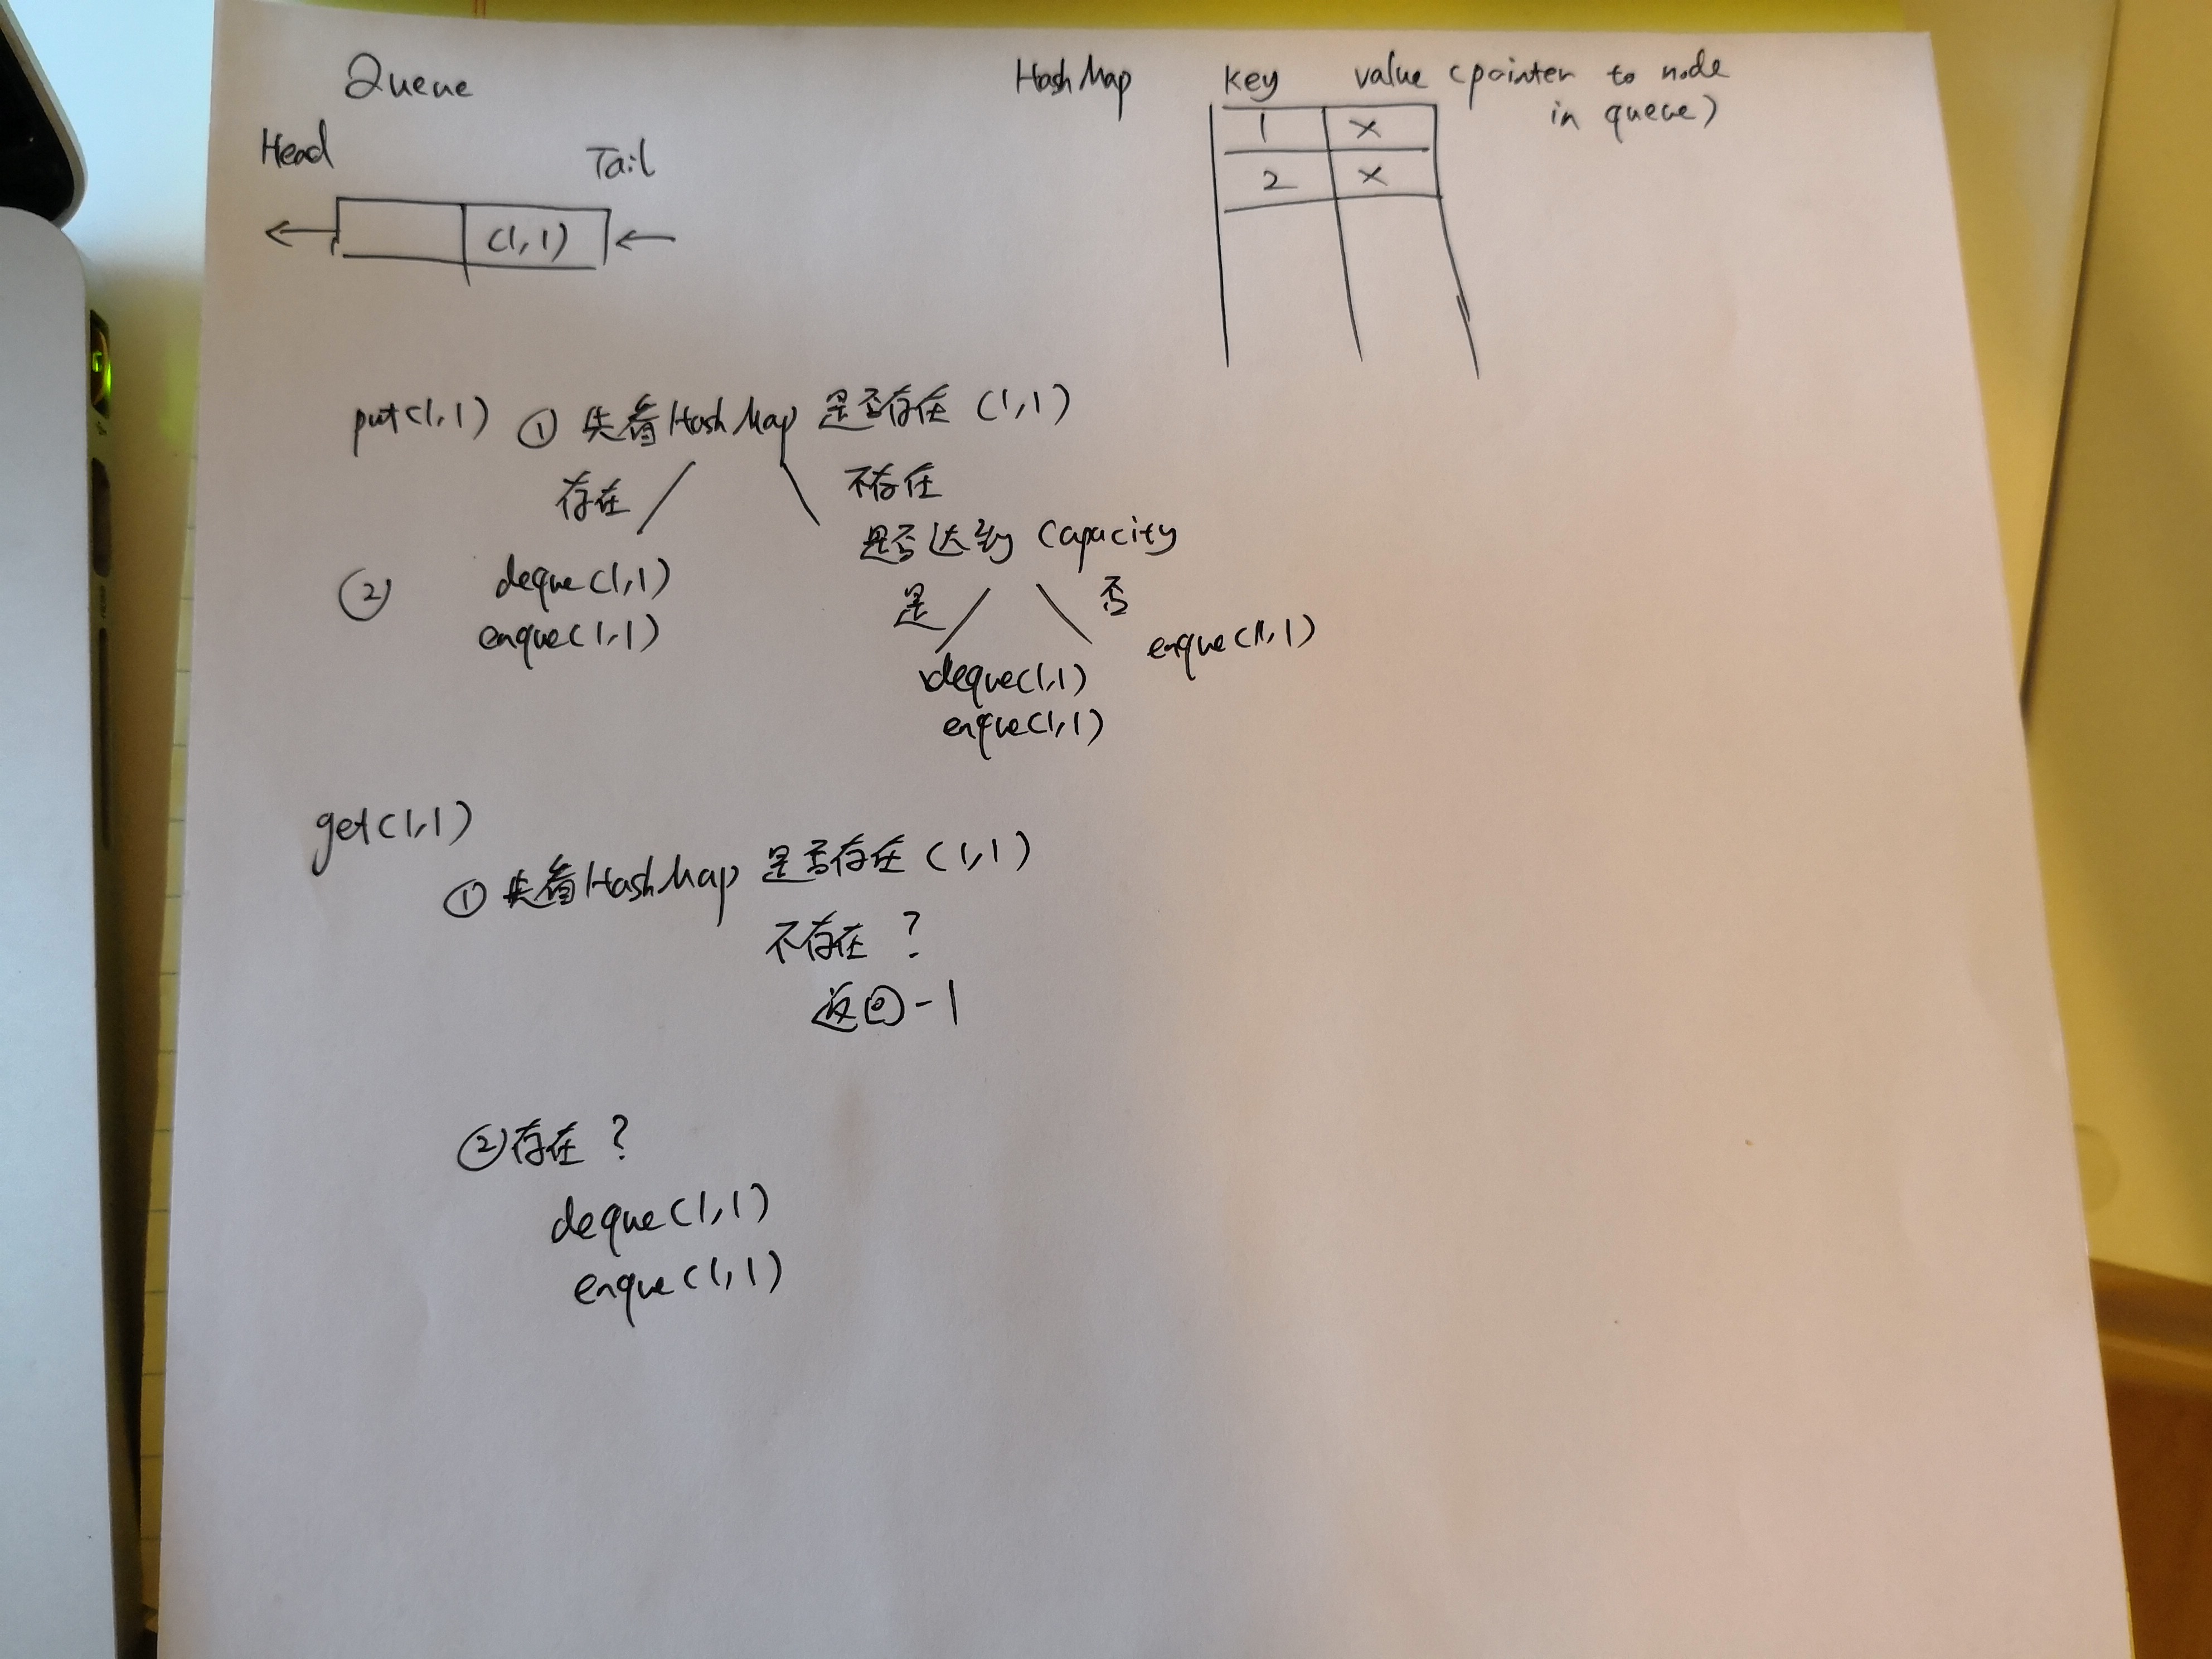 Queue
Head
Tail
(1,1)
HashMap key value (pointer to node
in queue)
1 x
2 x
put(1,1) ① 先看HashMap 是否存在 (1,1)
存在
不存在
是否达到 Capacity
② deque(1,1)
enque(1,1)
是
否
deque(1,1)
enque(1,1)
enque(1,1)
get(1,1)
① 先看HashMap 是否存在 (1,1)
不存在 ?
返回 -1
② 存在 ?
deque(1,1)
enque(1,1)